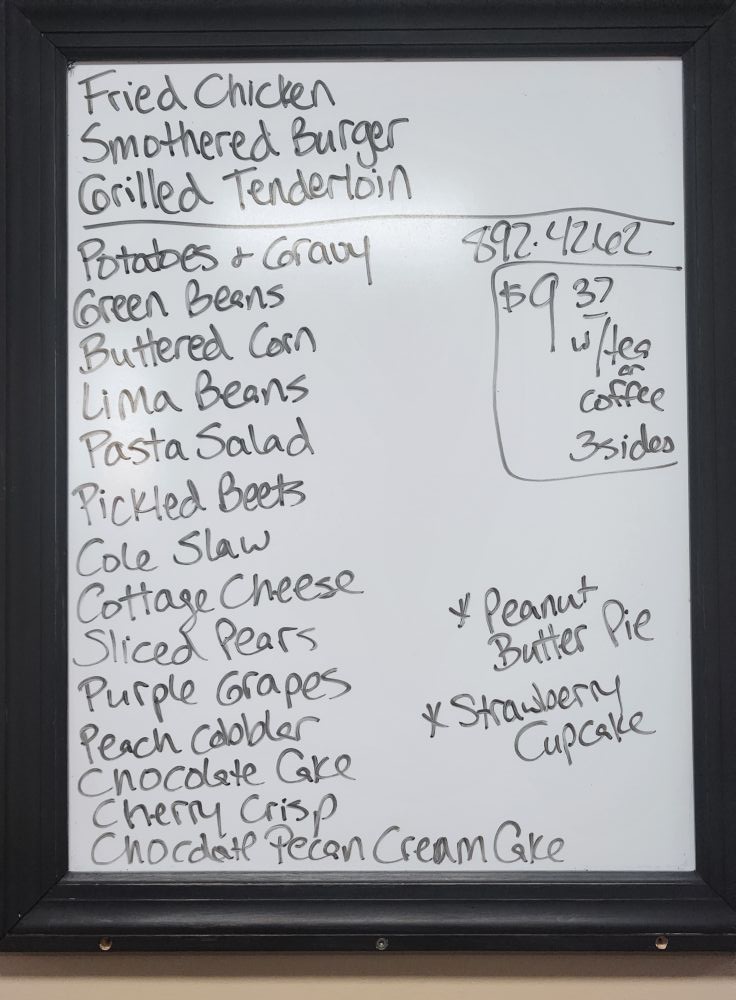 Fried Chicken
Smothered Burger
Grilled Tenderloin
892.4262
Potatoes + Gravy
Green Beans
Buttered Corn
Lima Beans
Pasta Salad
Pickled Beets
Cole Slaw
Cottage Cheese
Sliced Pears
Purple Grapes
Peach Cobbler
Chocolate Cake
Cherry Crisp
Chocolate Pecan Cream Cake
$9 37
w/tea
or
coffee
3 sides
* Peanut
Butter Pie
* Strawberry
Cupcake